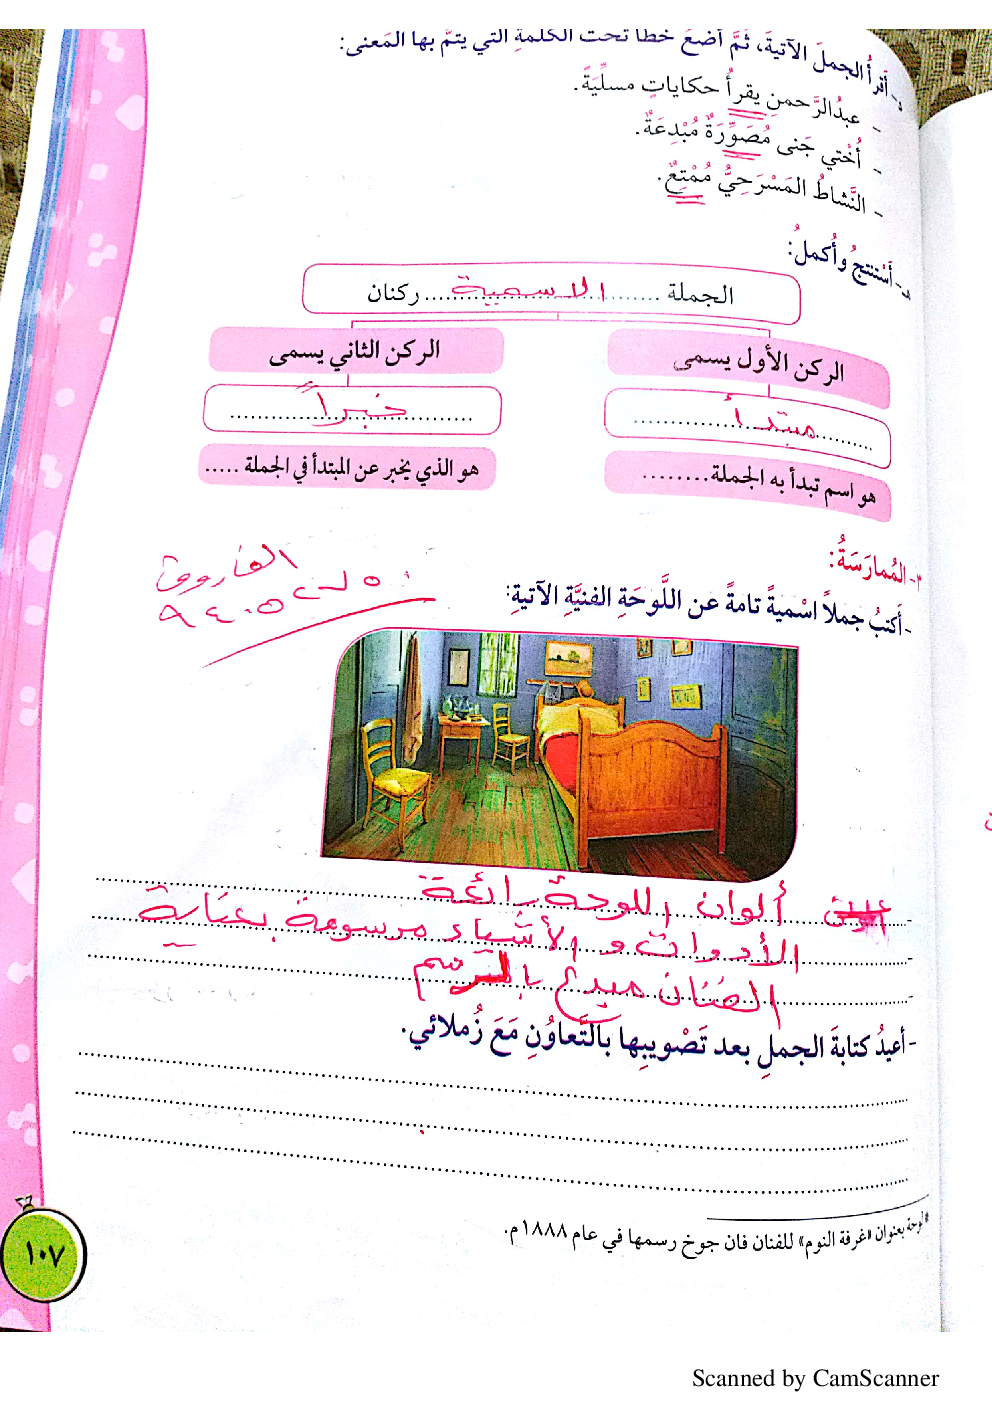 د- أَقرأُ الجملَ الآتيةَ، ثُمَّ أضعُ خطًّا تحت الكلمةِ التي يتمُّ بها المَعنى:
- عبدُالرَّحمنِ يقرأُ حكاياتٍ مسلِّيَةً.
- أُخْتي جَنى مُصَوِّرَةٌ مُبْدِعَةٌ.
- النَّشاطُ المَسْرَحِيُّ مُمْتِعٌ.
هـ- أَسْتنتجُ وأُكملُ:
الجملة ........ الاسمية ........ ركنان
الركن الأول يسمى
الركن الثاني يسمى
مبتدأ
خبراً
هو اسم تبدأ به الجملة........
هو الذي يخبر عن المبتدأ في الجملة .....
٣- المُمارَسَةُ:
الفاروق
- أَكتبُ جملاً اسْميةً تامةً عن اللَّوحَةِ الفنيَّةِ الآتيةِ:
- ألوان اللوحة رائعة
- الأدوات و الأشياء مرسومة بعناية
- الفنان مبدع بالرسم
- أعيدُ كتابةَ الجملِ بعد تَصْويبِها بالتَّعاوُنِ مَعَ زُملائي.
*لوحة بعنوان «غرفة النوم» للفنان فان جوخ رسمها في عام ١٨٨٨م.
١٠٧
Scanned by CamScanner